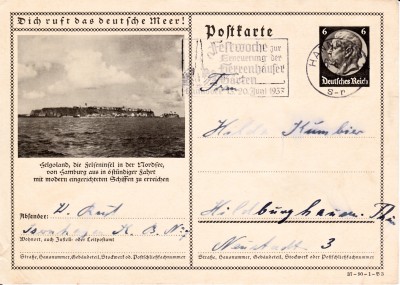 Dich ruft das deutsche Meer!
Postkarte
6 6
Deutsches Reich
Festwoche zur
Erneuerung der
Herrenhäuser
Gärten
20. Juni 1937
Helgoland, die Felseninsel in der Nordsee,
von Hamburg aus in 6stündiger Fahrt
mit modern eingerichteten Schiffen zu erreichen
Hilda Kumbier
Hildburghausen. Th
Neustadt 3
Absender:
Wohnort, auch Zustell- oder Leitpostamt
Straße, Hausnummer, Gebäudeteil, Stockwerk od. Postschließfachnummer
Straße, Hausnummer, Gebäudeteil, Stockwerk oder Postschließfachnummer